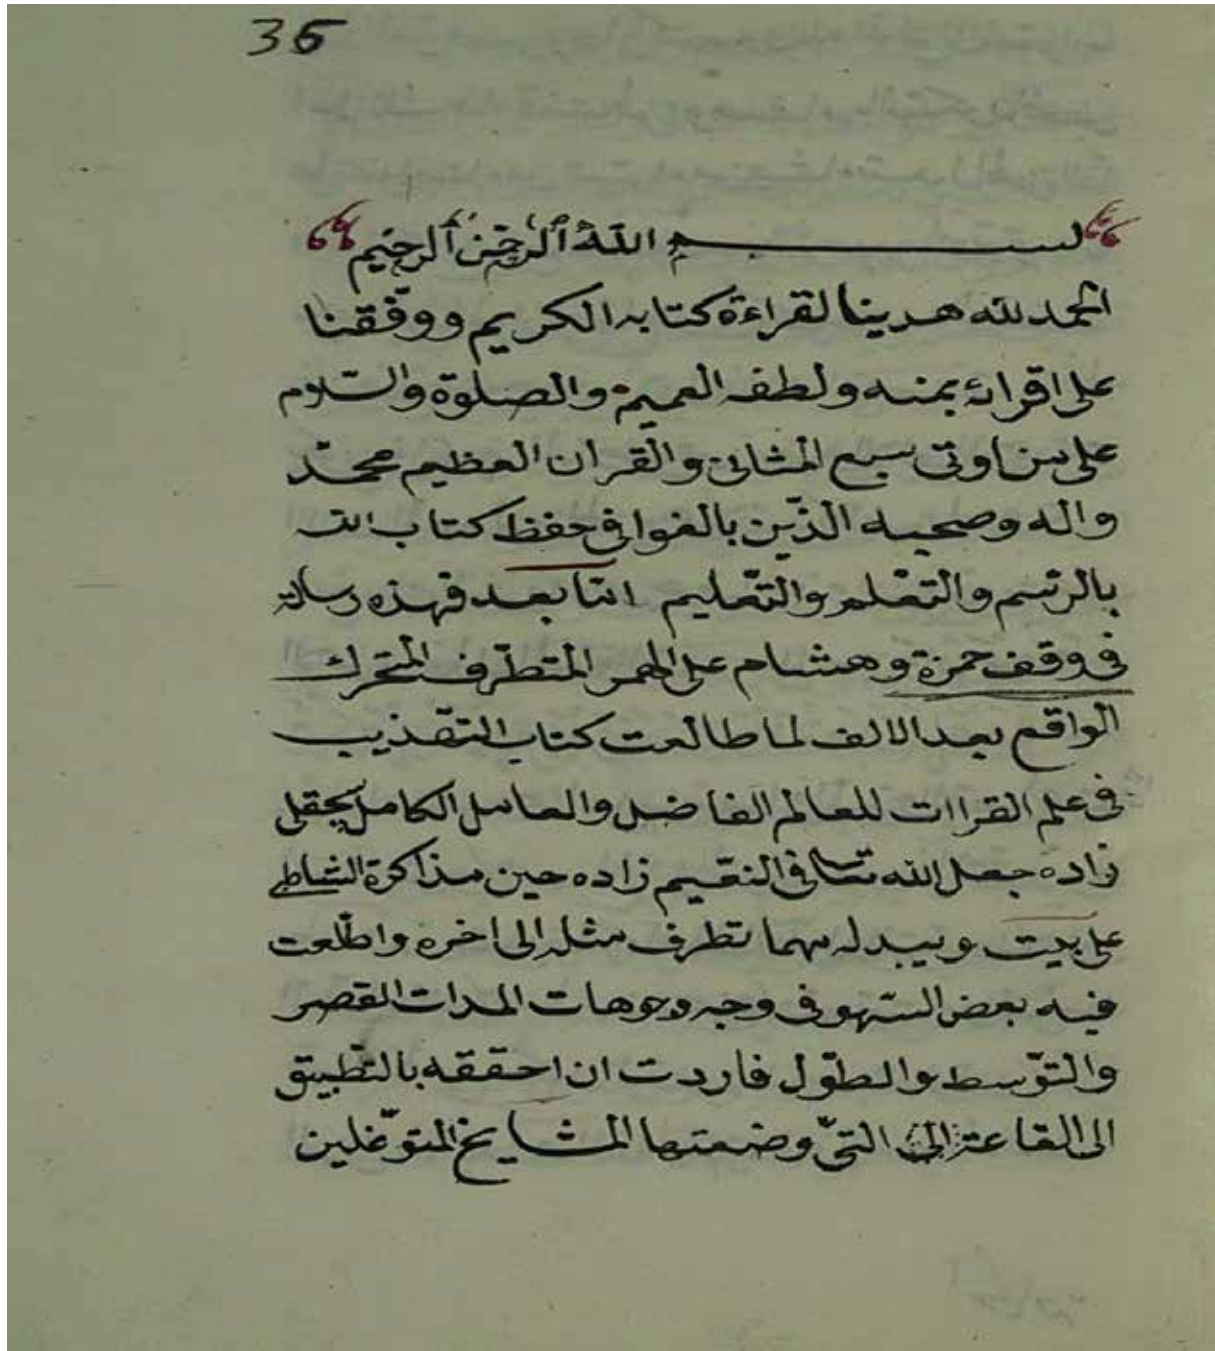 35
بسم الله الرحمن الرحيم
الحمد لله هدينا لقراءة كتابه الكريم ووفّقنا
على اقرائه بمنه ولطفه العميم والصلوة والسّلام
على من اوتى سبع المثانى والقران العظيم محمّد
واله وصحبه الذّين بالغوا فى حفظ كتاب الله
بالرّسم والتعّلم والتّعليم امّا بعد فهذه رسالة
فى وقف حمزة وهشام على الهمز المتطرّف المتحرك
الواقع بعد الالف لما طالعت كتاب
فى علم القراات للعالم الفاضل والعامل الكامل
زاده جعل الله تعالى النعيم زاده حين مذاكرة الشاطبى
على بيت ويبدله مهما تطرف مثله الى اخره واطّلعت
فيه بعض السّهو فى وجه وجوهات المدات القصر
والتوّسط والطّول فاردت ان احققه بالتّطبيق
الى التّى وضعتها المشايخ المتوغّلين